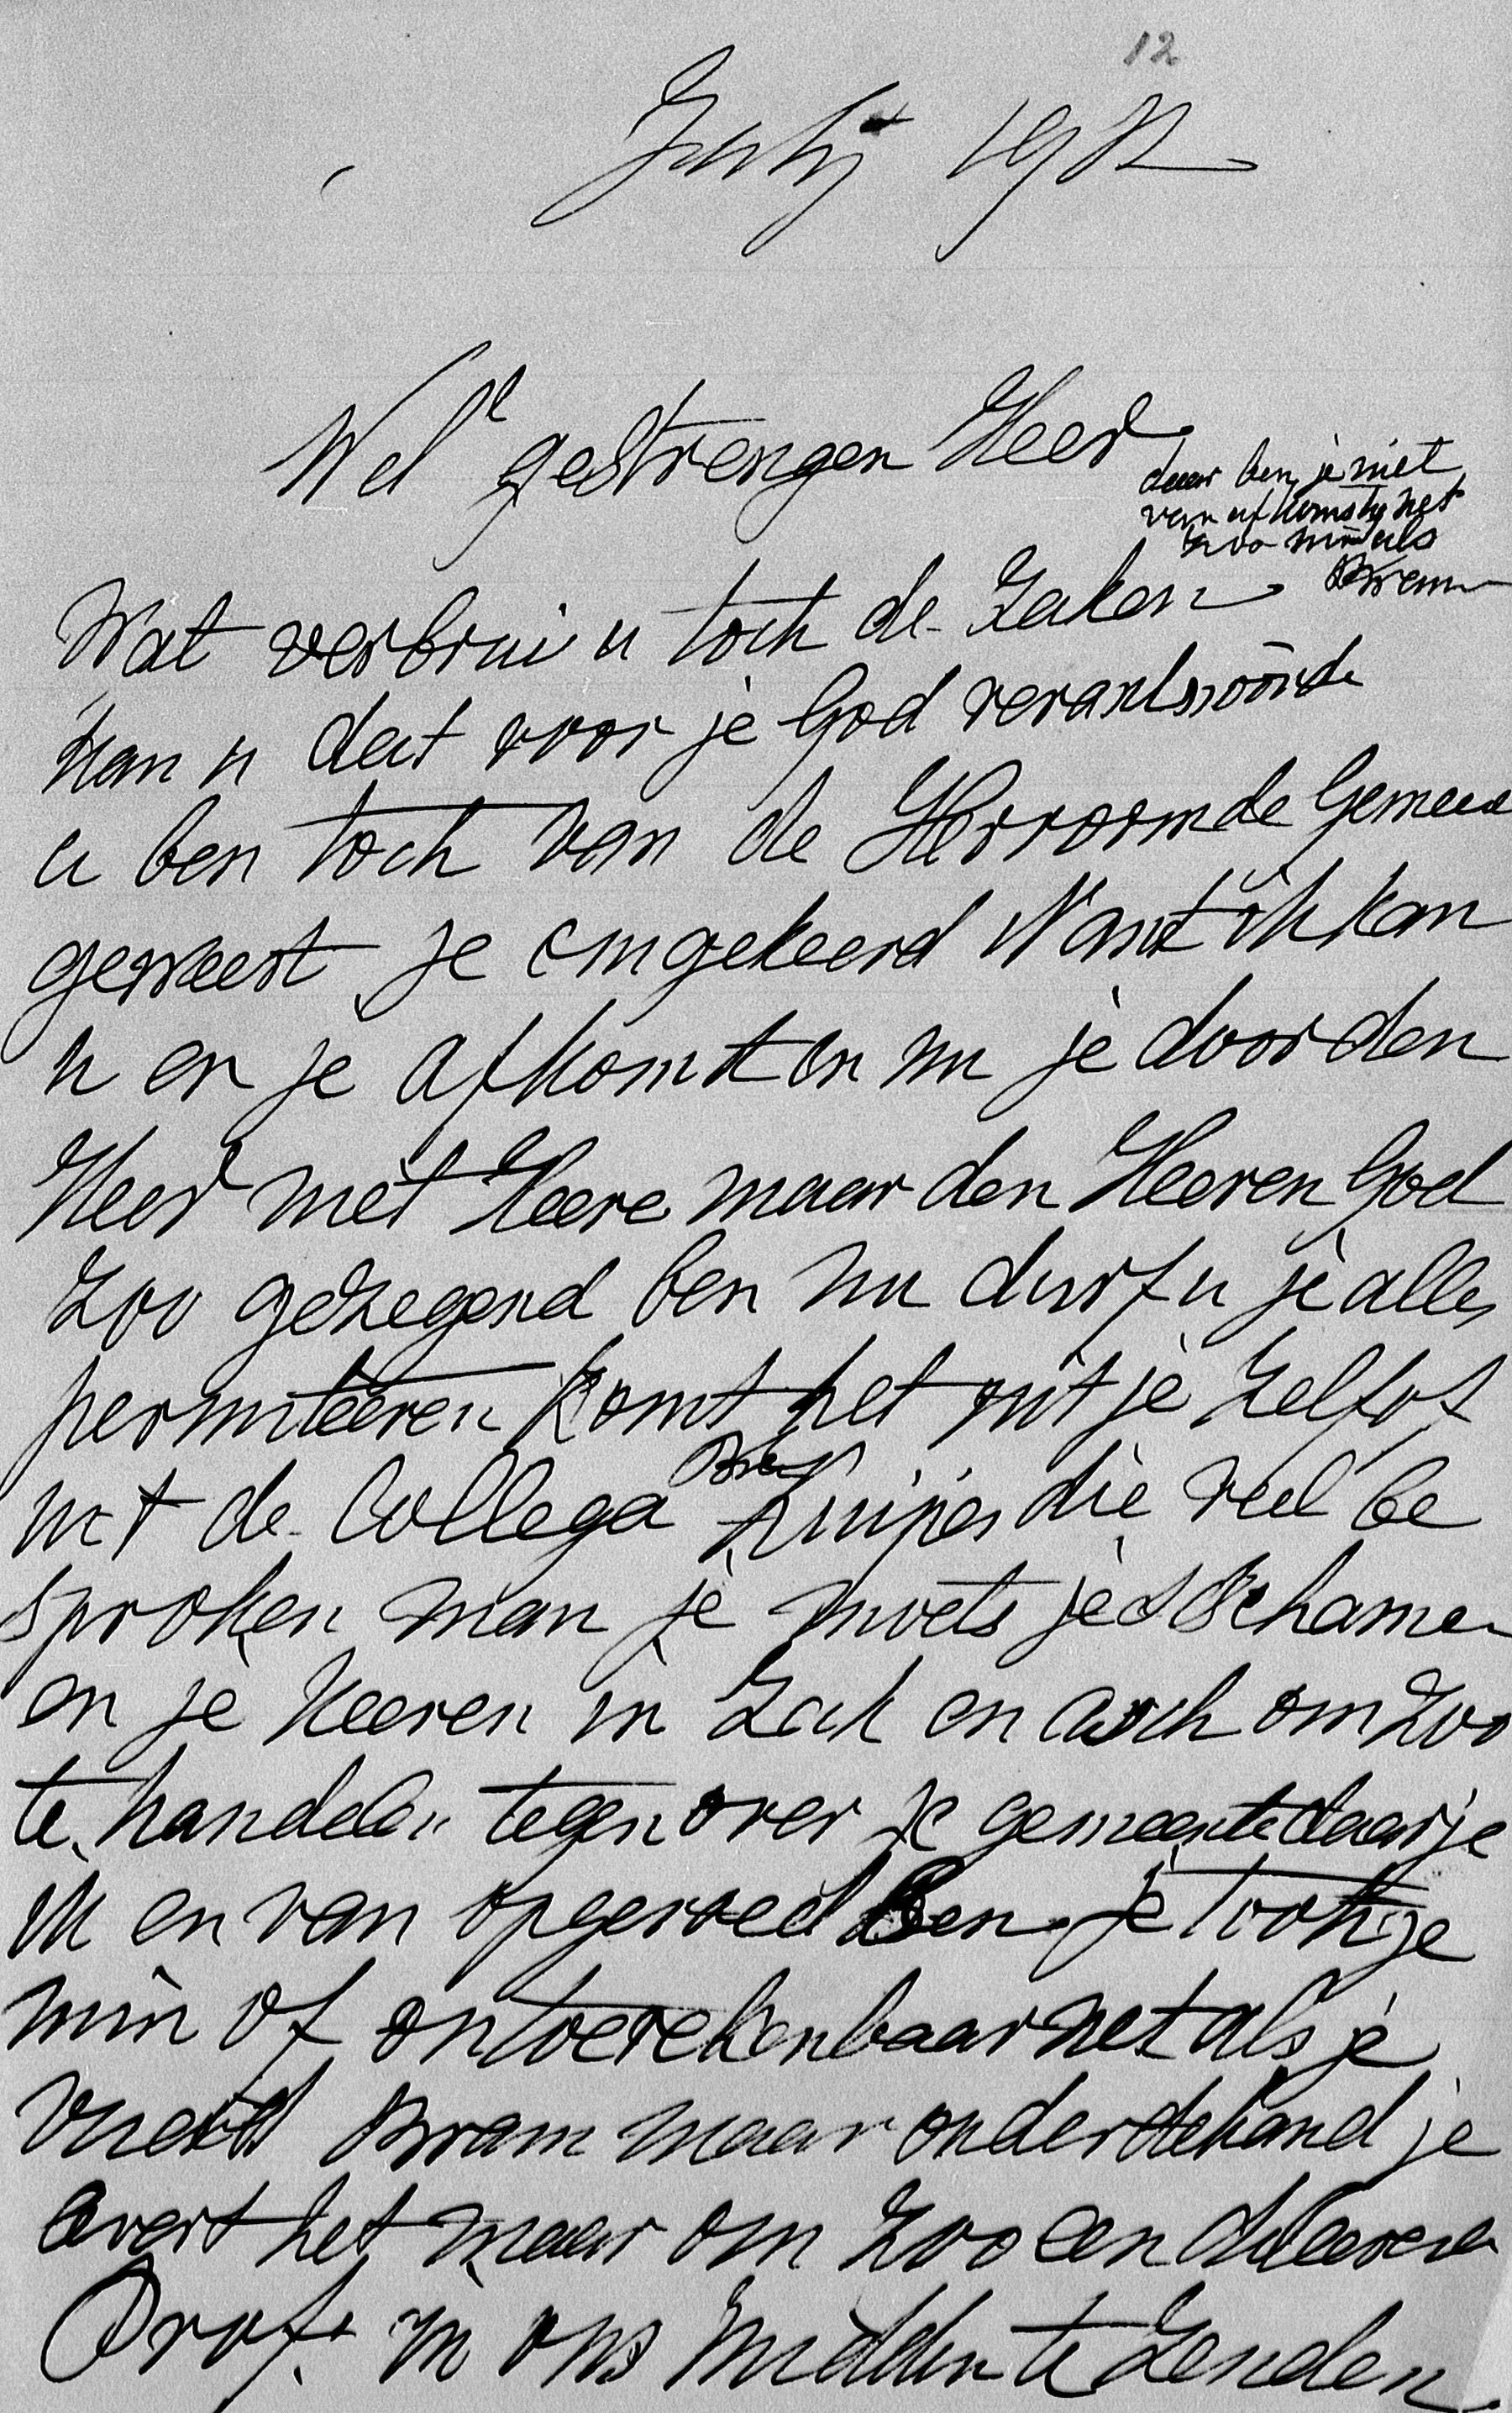 12
July 1902
Wel gestrengen Heer
daar ben je niet
van afkomstig net
zoo min als
Bram
Wat verbrui u toch de Zaken
kan u dat voor je God verantwoorde
u ben toch van de Hervormde Gemeen
geweest je omgekeerd Want ik kan
u en je afkomt en nu je door den
Heer niet Heere maar den Heeren God
zoo gezegend ben nu durf u je alles
permiteeren komt het uit je zelf of
uit de Collega Kuiper die veel be
sproken man je moets je schamen
en je keeren in Zak en asch om zoo
te handelen tegenover je gemeente daar je
in en van opgevoed Ben je took je
min of ontoerekenbaar net als je
vriend Bram maar onderdehand je
avert het maar om zoo een
Prof. in ons midden te zenden